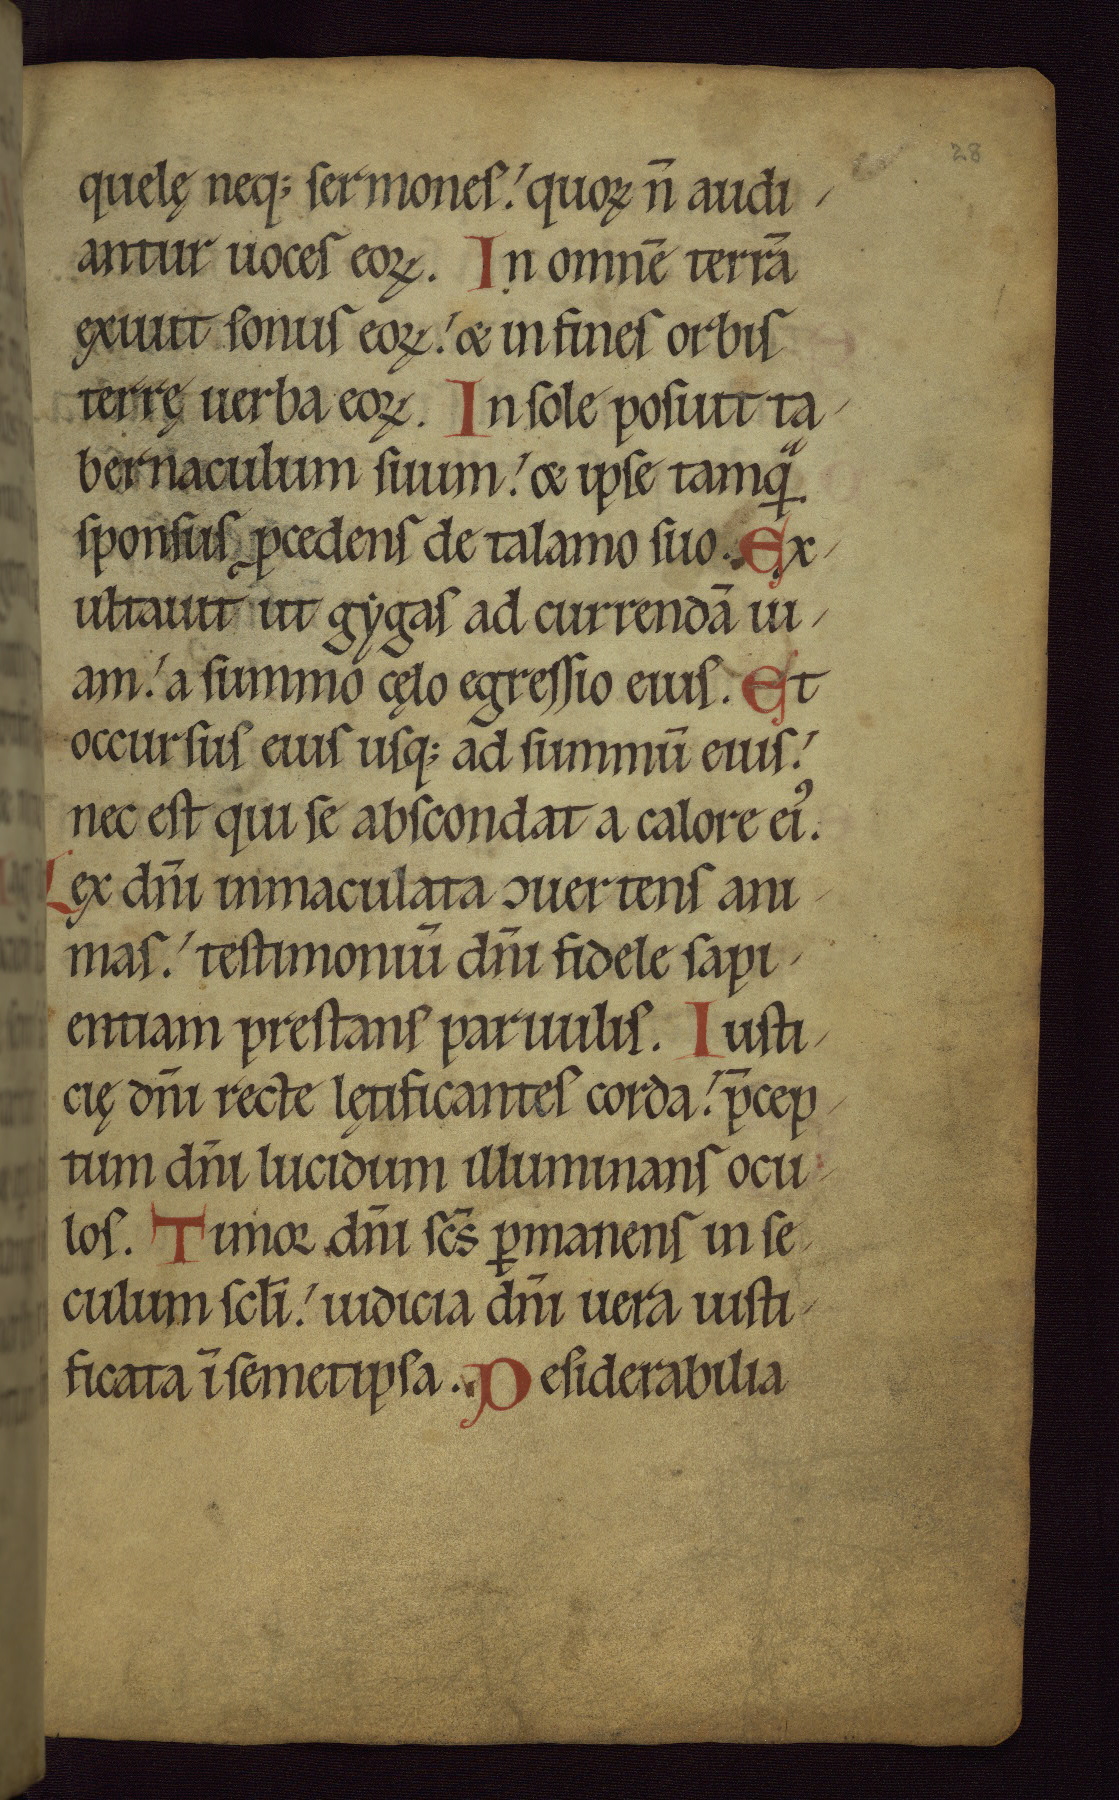 28
quelę neq; sermones. quoꝝ n̄ audi
antur uoces eoꝝ. In omnē terrā
exiuit sonus eoꝝ. & in fines orbis
terrę uerba eoꝝ. In sole posuit ta
bernaculum suum. & ipse tamqͣ
sponsus ꝓcedens de talamo suo. Ex
ultauit ut gẏgas ad currendā ui
am. a summo cęlo egressio eius. Et
occursus eius usq; ad summū eius.
nec est qui se abscondat a calore eiꝰ.
Lex dn̄i inmaculata ↄuertens ani
mas. testimoniū dn̄i fidele sapi
entiam prestans paruulis. Iusti
cię dn̄i recte lętificantes corda. p̄cep
tum dn̄i lucidum illuminans ocu
los. Timor dn̄i sc̄s ꝑmanens in se
culum scl̄i. iudicia dn̄i uera iusti
ficata ī semetipsa. Desiderabilia